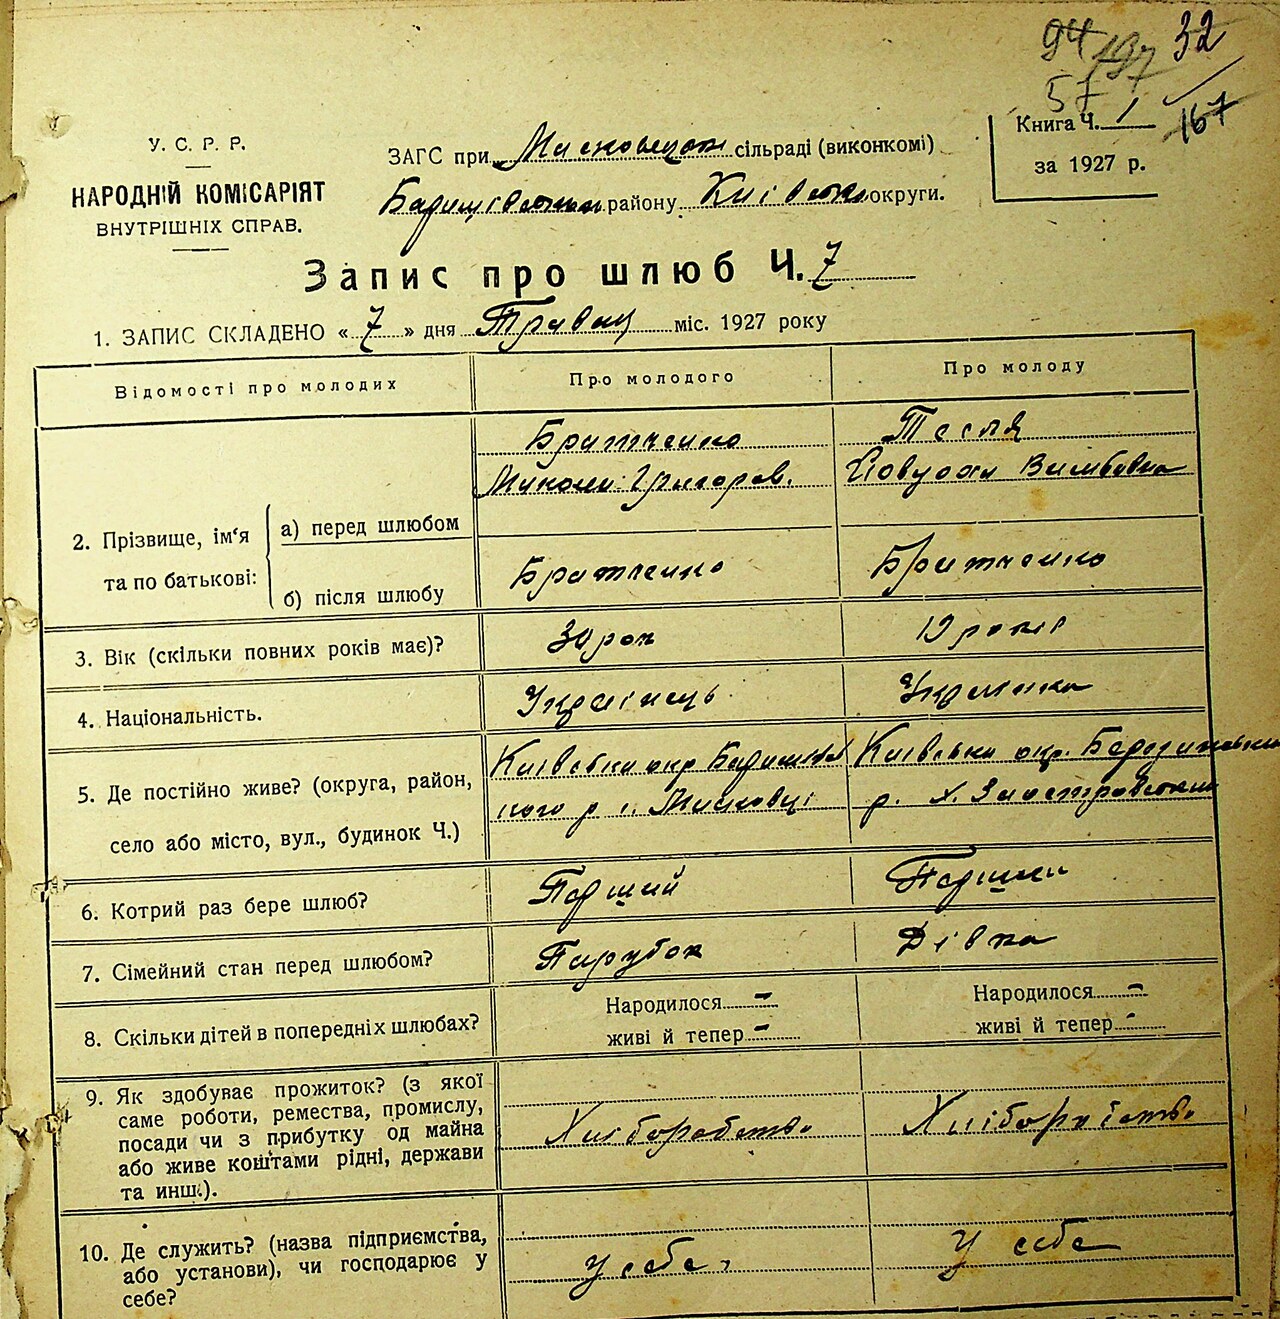 94 197 32
57 167
У. С. Р. Р.
НАРОДНІЙ КОМІСАРІЯТ
ВНУТРІШНІХ СПРАВ.
ЗАГС при сільраді (виконкомі)
району Київськ округи.
Книга Ч. 1
за 1927 р.
Запис про шлюб Ч. 7
1. ЗАПИС СКЛАДЕНО «7» дня Травня міс. 1927 року
Відомості про молодих
Про молодого
Про молоду
2. Прізвище, ім‘я та по батькові:
а) перед шлюбом
Бритченко
Микола Григоров.
Тесля
б) після шлюбу
Бритченко
Бритченко
3. Вік (скільки повних років має)?
30 рок
19 років
4. Національність.
Українець
Українка
5. Де постійно живе? (округа, район,
село або місто, вул., будинок Ч.)
Київська окр. Баришівсь
кого р с.
Київська окр.
р. х.
6. Котрий раз бере шлюб?
Перший
Перший
7. Сімейний стан перед шлюбом?
Парубок
Дівка
8. Скільки дітей в попередніх шлюбах?
Народилося –
живі й тепер –
Народилося –
живі й тепер –
9. Як здобуває прожиток? (з якої
саме роботи, ремества, промислу,
посади чи з прибутку од майна
або живе коштами рідні, держави
та инш.).
Хліборобство
Хліборобство
10. Де служить? (назва підприємства,
або установи), чи господарює у
себе?
У себе
У себе